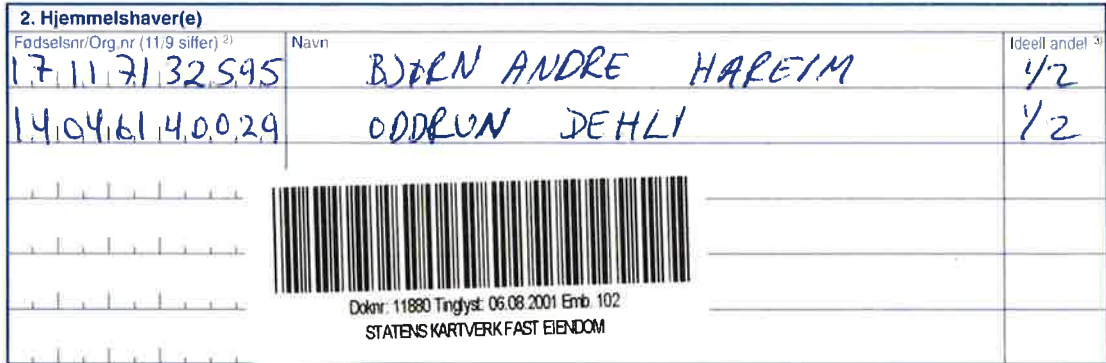 2. Hjemmelshaver(e)
Fødselsnr/Org.nr (11/9 siffer) 2) Navn Ideell andel 3)
17117132595 BJØRN ANDRE HAREIM 1/2
14046140029 ODDRUN DEHLI 1/2
Doknr: 11880 Tinglyst: 06.08.2001 Emb. 102
STATENS KARTVERK FAST EIENDOM